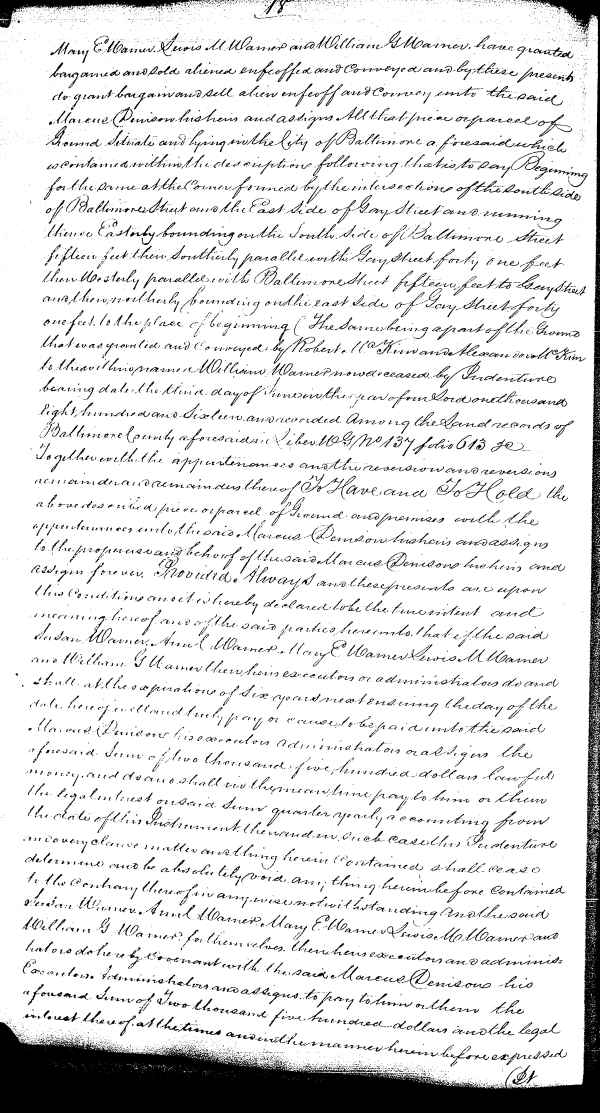 15
Mary E Warner Lewis M Warner and William G Warner, have granted
bargained and sold aliened enfeoffed and conveyed and by these presents
do grant bargain and sell alien enfeoff and convey unto the said
Marcus Denison his heirs and assigns All that piece or parcel of
Ground Situate and lying in the City of Baltimore aforesaid which
is contained within the description following that is to say Begining
for the same at the Corner formed by the intersections of the South side
of Baltimore Street and the East Side of Gay Street and running
thence Easterly bounding on the South Side of Baltimore Street
fifteen feet then Southerly parallel with Gay street forty one feet
then Westerly parallel with Baltimore Street fifteen feet to Gay Street
and then northerly bounding on the east side of Gay Street forty
one feet to the place of beginning (The same being a part of the Ground
that was granted and conveyed by Robert McKim and Alexander McKim
to the within named William Warner now deceased by Indenture
bearing date the third day of June in the year of our Lord one thousand
Eight hundred and Sixteen and recorded Among the Land records of
Baltimore County aforesaid in Liber W G No 137 folio 613 &c
Together with the appurtenances and the reversion and reversions
remainder and remainders thereof To Have and To Hold the
above described piece or parcel of Ground and premises with the
appurtenances unto the said Marcus Denison his heirs and assigns
to the proper use and behoof of the said Marcus Denison his heirs and
assigns forever. Provided Always and these presents are upon
this Condition and it is hereby declared to be the true intent and
meaning hereof and of the said parties hereunto that if the said
Susan Warner, Ann L Warner, Mary E Warner Lewis M Warner
and William G Warner their heirs executors or administrators do and
shall at the expiration of Six years next ensuing the day of the
date hereof well and truly pay or cause to be paid unto the said
Marcus Denison his executors administrators or assigns the
aforesaid Sum of two thousand five hundred dollars lawful
money and do and shall in the mean time pay to him or them
the legal interest on said Sum quarter yearly accounting from
the date of this Instrument then and in such case this Indenture
and every clause matter and thing herein contained shall cease
determine and be absolutely void any thing herein before contained
to the contrary thereof in any wise notwithstanding And the said
Susan Warner, Ann L Warner Mary E Warner Lewis M Warner and
William G Warner, for themselves their heirs executors and adminis-
trators do hereby Covenant with the said Marcus Denison his
Executors Administrators and assigns to pay to him or them the
aforesaid Sum of Two thousand five hundred dollars and the legal
interest thereof at the times and in the manner herein before expressed